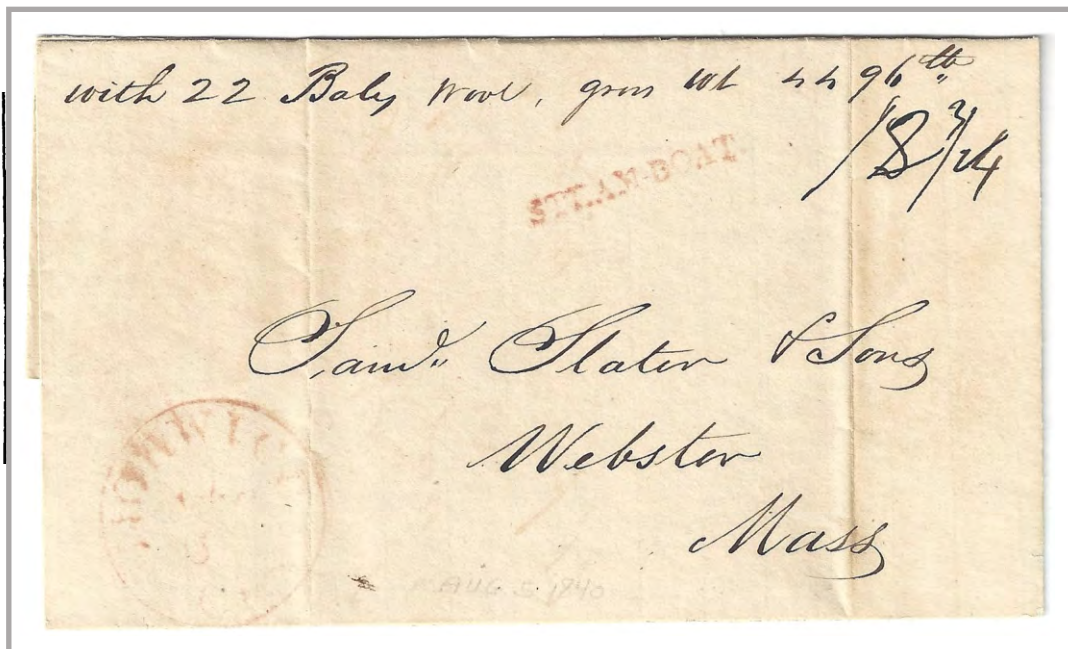 with 22 Bales Wool, gross wt 4496 lb
18 3/4
STEAM-BOAT
Saml. Slater & Sons
Webster
Mass
NORWICH
AUG 5 1840